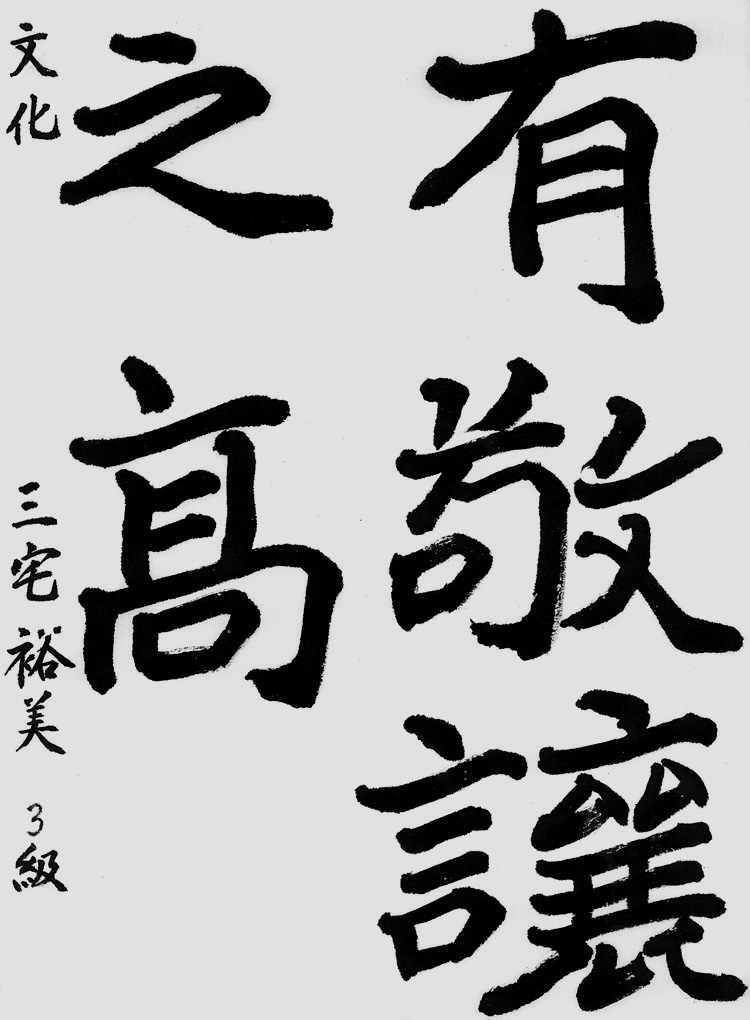 有敬讓
之髙
文化 三宅裕美 3級